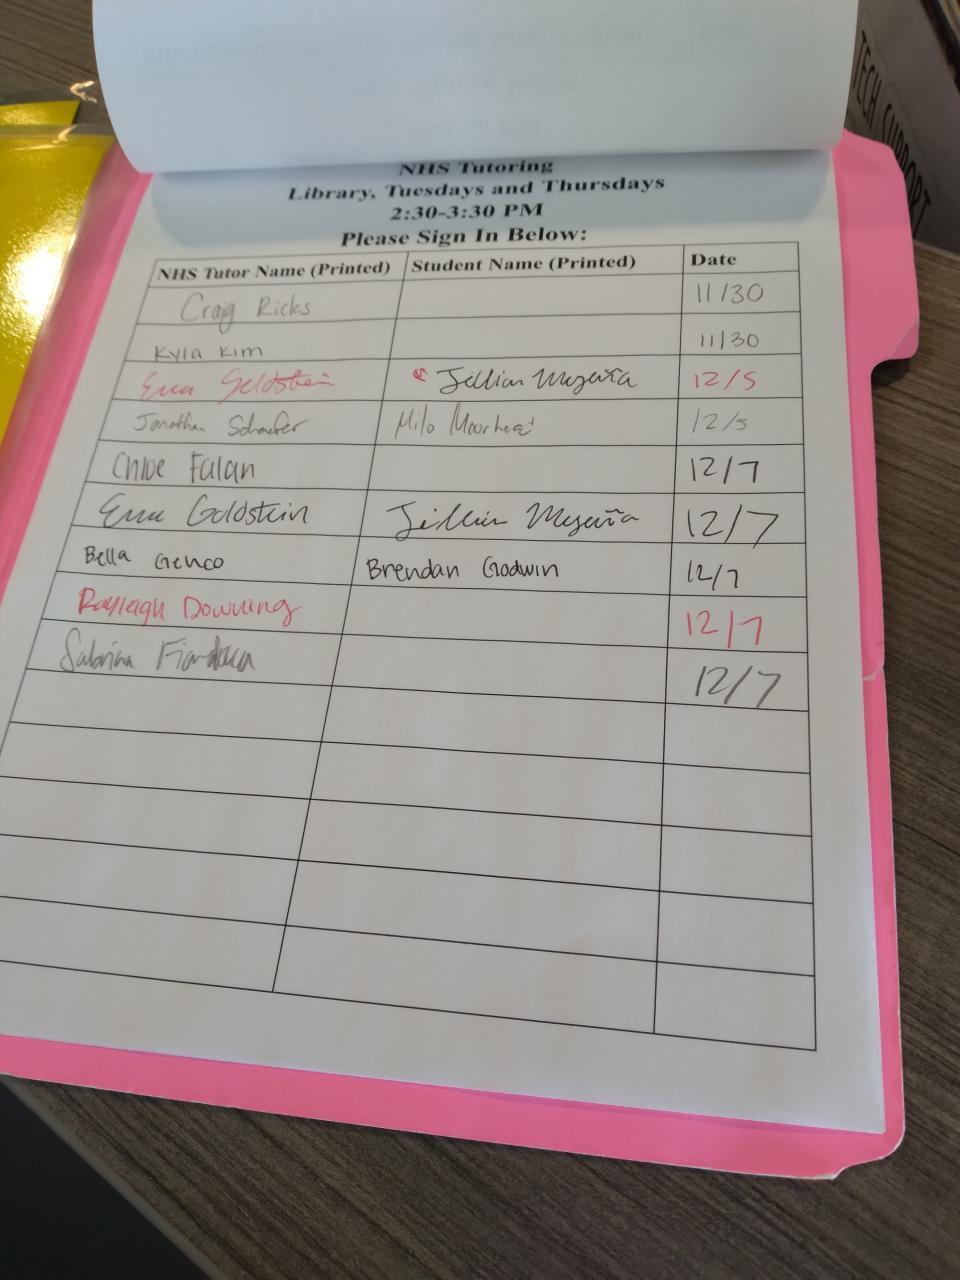 NHS Tutoring
Library, Tuesdays and Thursdays
2:30-3:30 PM
Please Sign In Below:
NHS Tutor Name (Printed) Student Name (Printed) Date
Craig Ricks 11/30
Kyla Kim 11/30
Goldstein Jillian 12/5
Jonathan Schaefer Milo Moorhead 12/5
Chloe Falan 12/7
Goldstein Jillian 12/7
Bella Genco Brendan Godwin 12/7
Rayleigh Downing 12/7
Sabrina 12/7
TECH SUPPORT